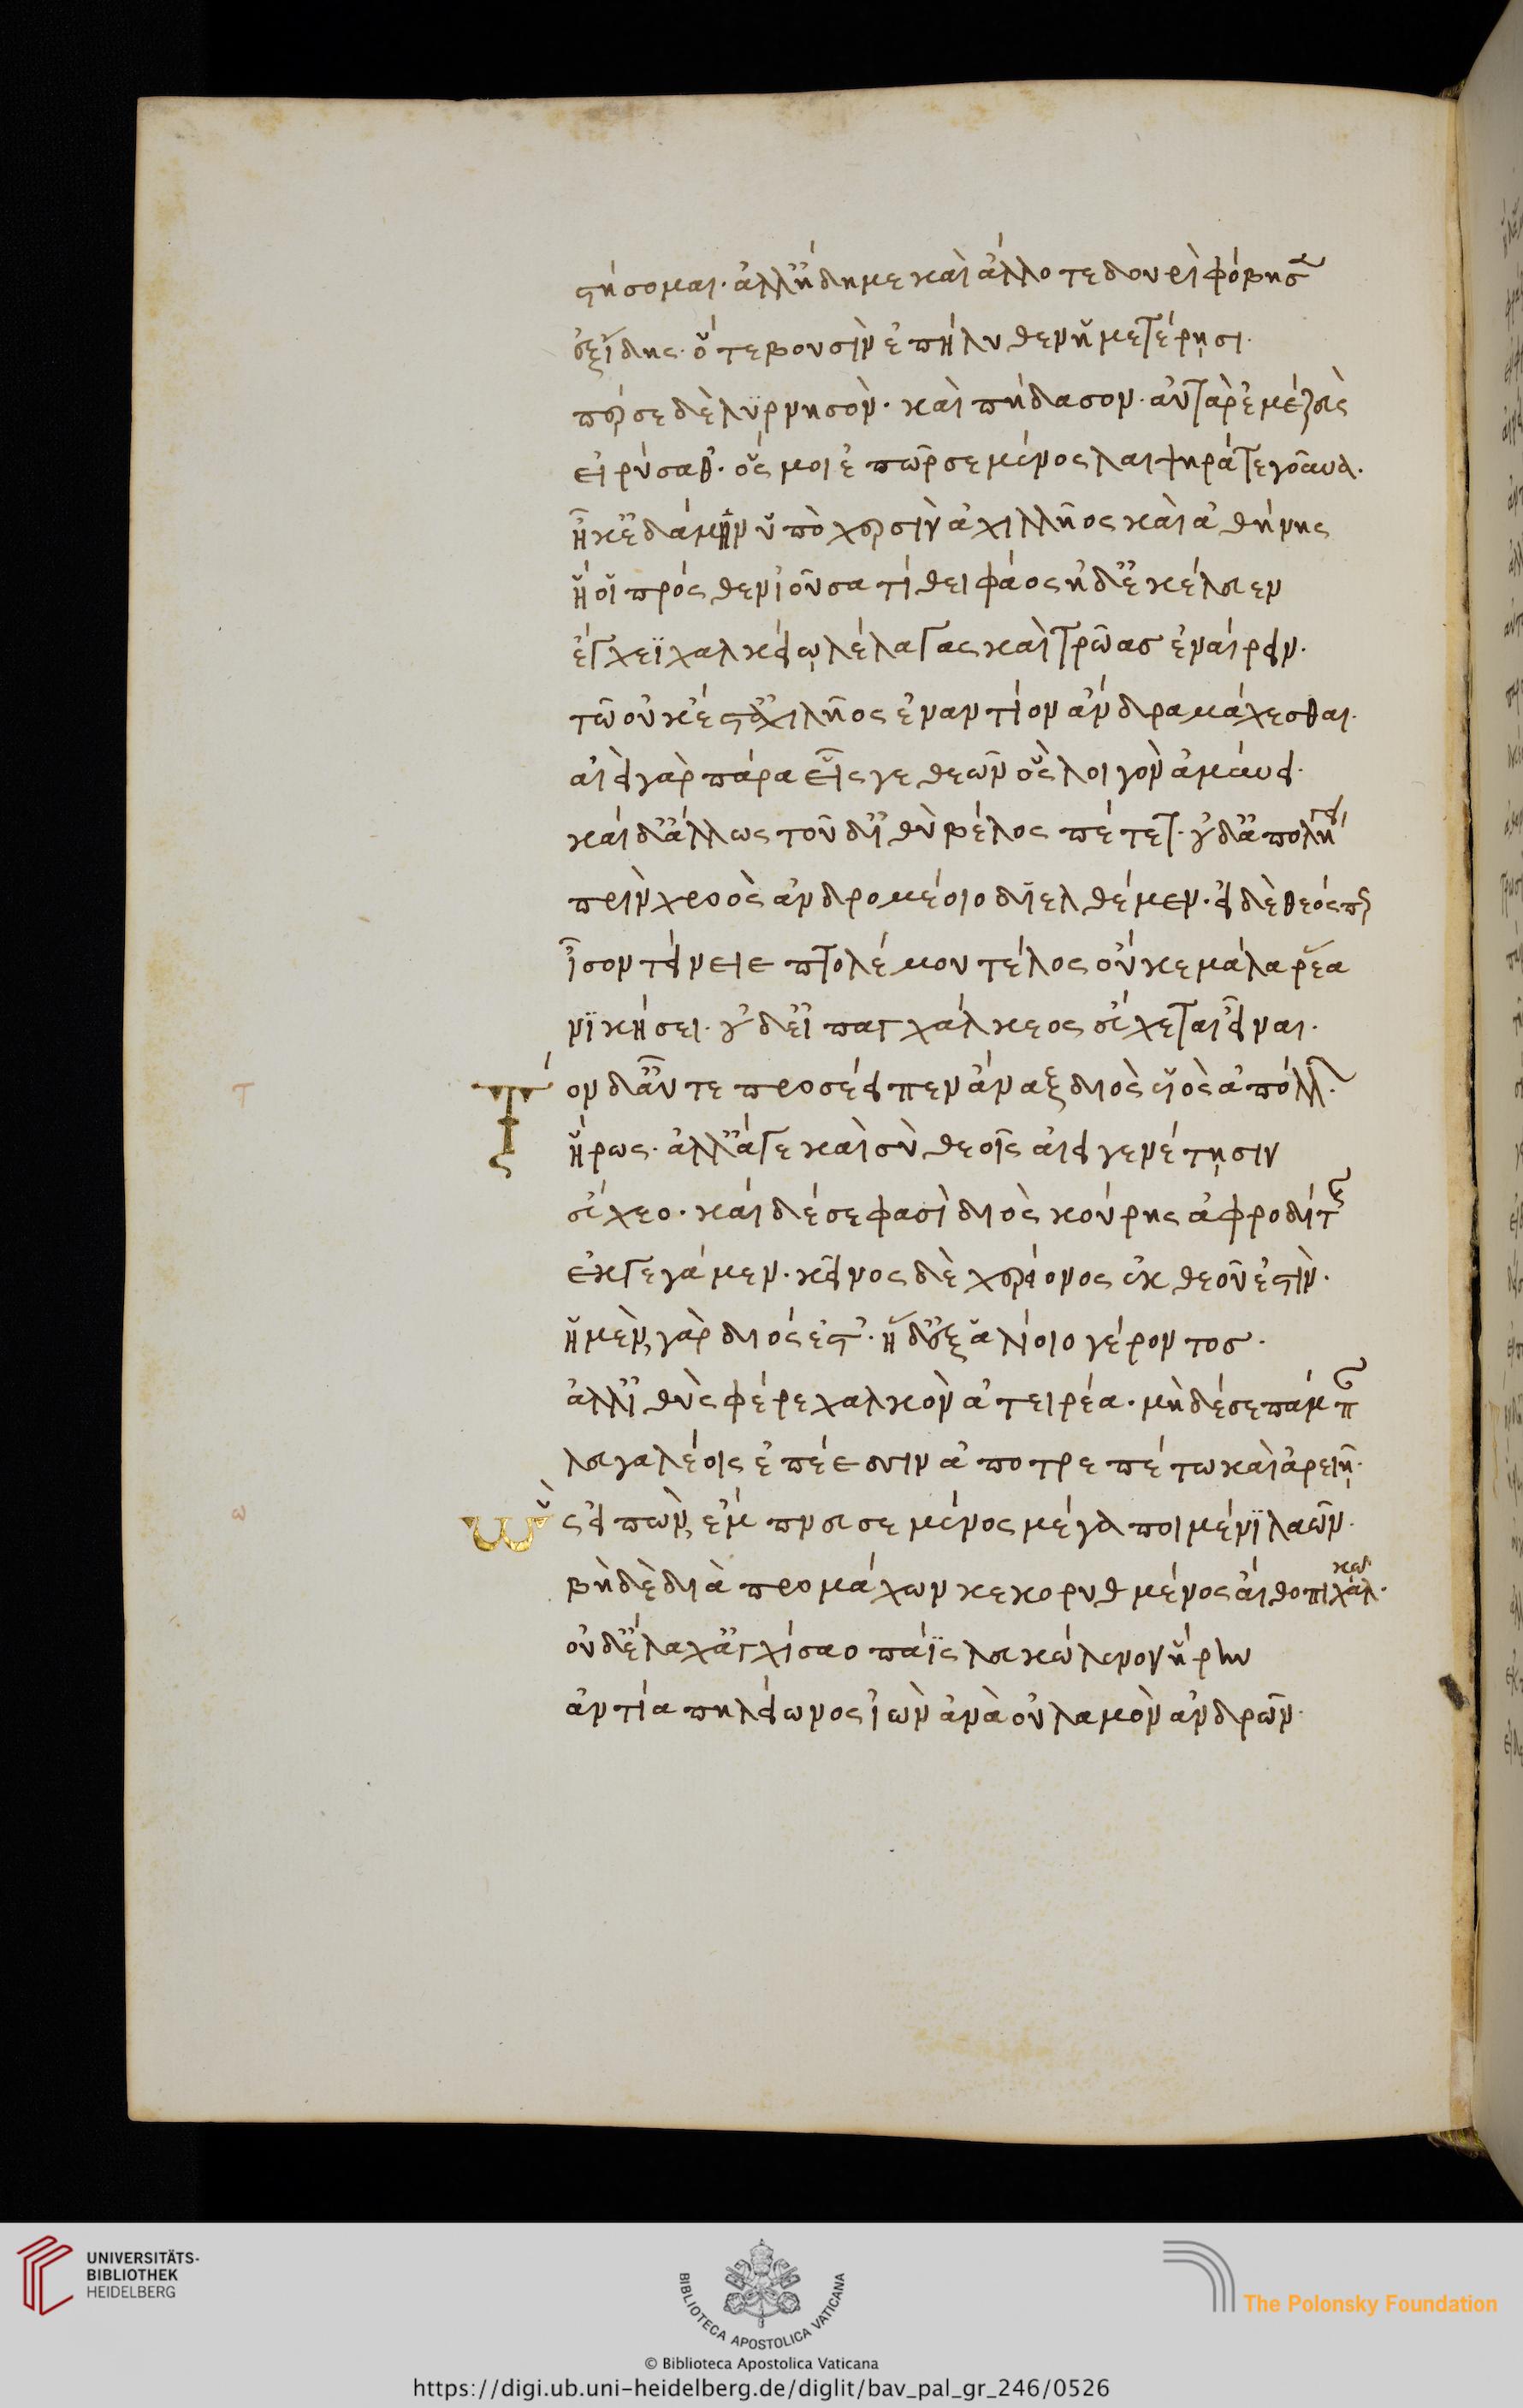 στήσομαι· ἀλλ' ἤδη με καὶ ἄλλοτε δουρὶ φόβησεν
ἐξ ἴδης· ὅτε βουσὶν ἐπήλυθεν ἡμετέρησι·
πέρσε δὲ λυρνησὸν· καὶ πήδασον· αὐτὰρ ἐμὲ ζεὺς
εἰρύσαθ'· ὅς μοι ἐπῶρσε μένος λαιψηρά τε γοῦνα·
ἦ κ' ἐδάμην ὑπὸ χερσὶν ἀχιλλῆος καὶ ἀθήνης
ἥ οἱ πρόσθεν ἰοῦσα τίθει φάος ἠδ' ἐκέλευεν
ἔγχεϊ χαλκείῳ λέλαγας καὶ τρῶας ἐναίρειν·
τῶ οὐκ ἔστ' ἀχιλῆος ἐναντίον ἄνδρα μάχεσθαι·
αἰεὶ γὰρ πάρα εἷς γε θεῶν ὃς λοιγὸν ἀμύνει·
καὶ δ' ἄλλως τοῦ δ' ἰθὺ βέλος πέτετ'· οὐδ' ἀπολήγει
πρὶν χροὸς ἀνδρομέοιο διελθέμεν· εἰ δὲ θεός περ
ἶσον τείνειε πτολέμου τέλος οὔ κε μάλα ῥέα
νικήσει· οὐδ' εἰ παγχάλκεος εὔχεται εἶναι·
Τὸν δ' αὖτε προσέειπεν ἄναξ διὸς υἱὸς ἀπόλλων·
ἥρως· ἀλλ' ἄγε καὶ σὺ θεοῖς αἰειγενέτησιν
εὔχεο· καὶ δέ σε φασὶ διὸς κούρης ἀφροδίτης
ἐκγεγάμεν· κεῖνος δὲ χερείονος ἐκ θεοῦ ἐστὶν·
ἡ μὲν γὰρ διός ἐστ'· ἡ δ' ἐξ ἁλίοιο γέροντος·
ἀλλ' ἰθὺς φέρε χαλκὸν ἀτειρέα· μὴ δέ σε πάμπαν
λευγαλέοις ἐπέεσσιν ἀποτρεπέτω καὶ ἀρειῇ·
Ὣς εἰπὼν ἔμπνευσε μένος μέγα ποιμένι λαῶν·
βὴ δὲ διὰ προμάχων κεκορυθμένος αἴθοπι χαλκῶ·
οὐδ' ἔλαθ' ἀγχίσαο πάϊς λευκώλενον ἥρην
ἀντία πηλείωνος ἰὼν ἀνὰ οὐλαμὸν ἀνδρῶν·
τ
ω
UNIVERSITÄTS-
BIBLIOTHEK
HEIDELBERG
BIBLIOTECA APOSTOLICA VATICANA
The Polonsky Foundation
© Biblioteca Apostolica Vaticana
https://digi.ub.uni-heidelberg.de/diglit/bav_pal_gr_246/0526